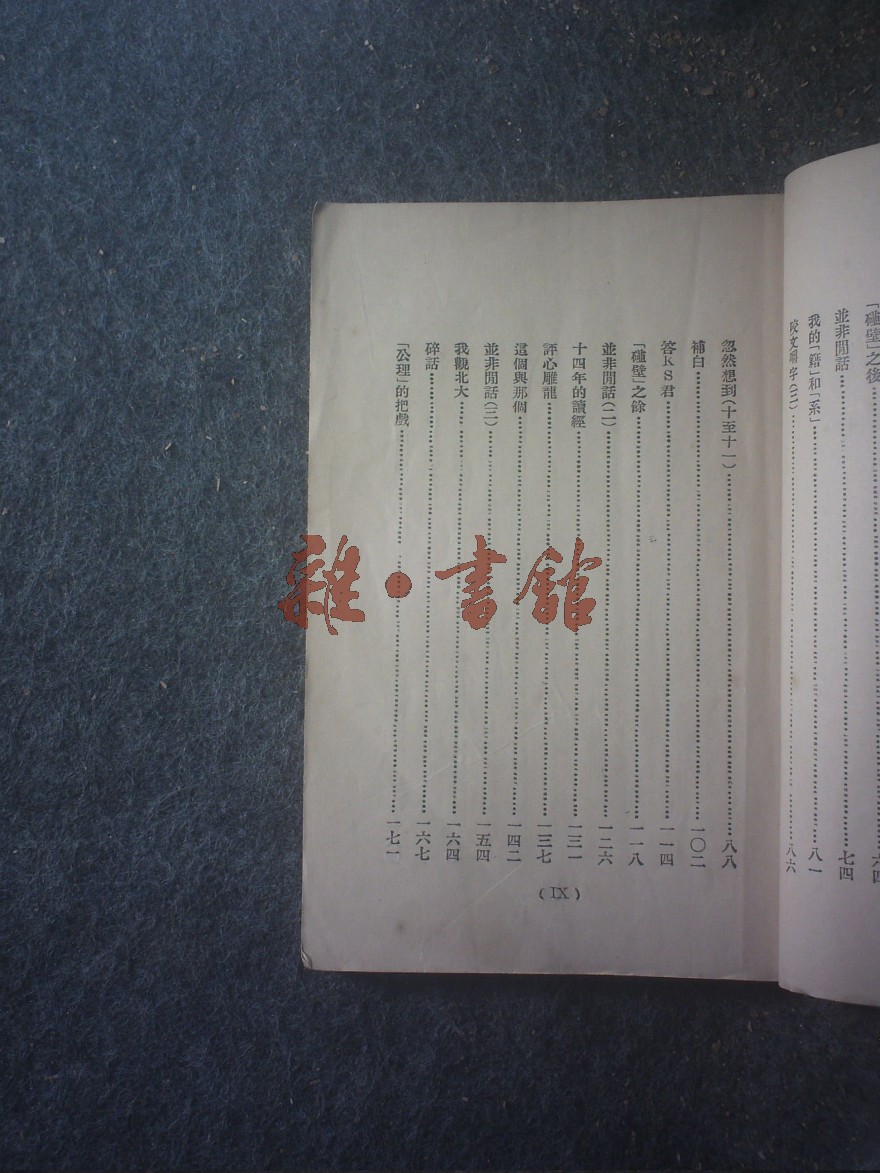 「碰壁」之後……六四
並非閒話……七四
我的「籍」和「系」……八一
咬文嚼字(三)……八六
忽然想到(十至十一)……八八
補白……一〇二
答KS君……一一四
「碰壁」之餘……一一八
並非閒話(二)……一二六
十四年的讀經……一三一
評心雕龍……一三七
這個與那個……一四二
並非閒話(三)……一五四
我觀北大……一六四
碎話……一六七
「公理」的把戲……一七一
(IX)
雜·書館